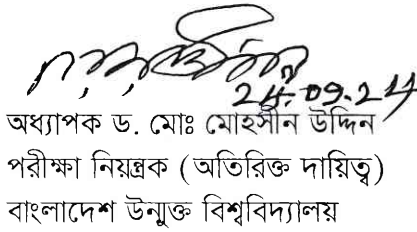 24.09.24
অধ্যাপক ড. মোঃ মোহসীন উদ্দিন
পরীক্ষা নিয়ন্ত্রক (অতিরিক্ত দায়িত্ব)
বাংলাদেশ উন্মুক্ত বিশ্ববিদ্যালয়